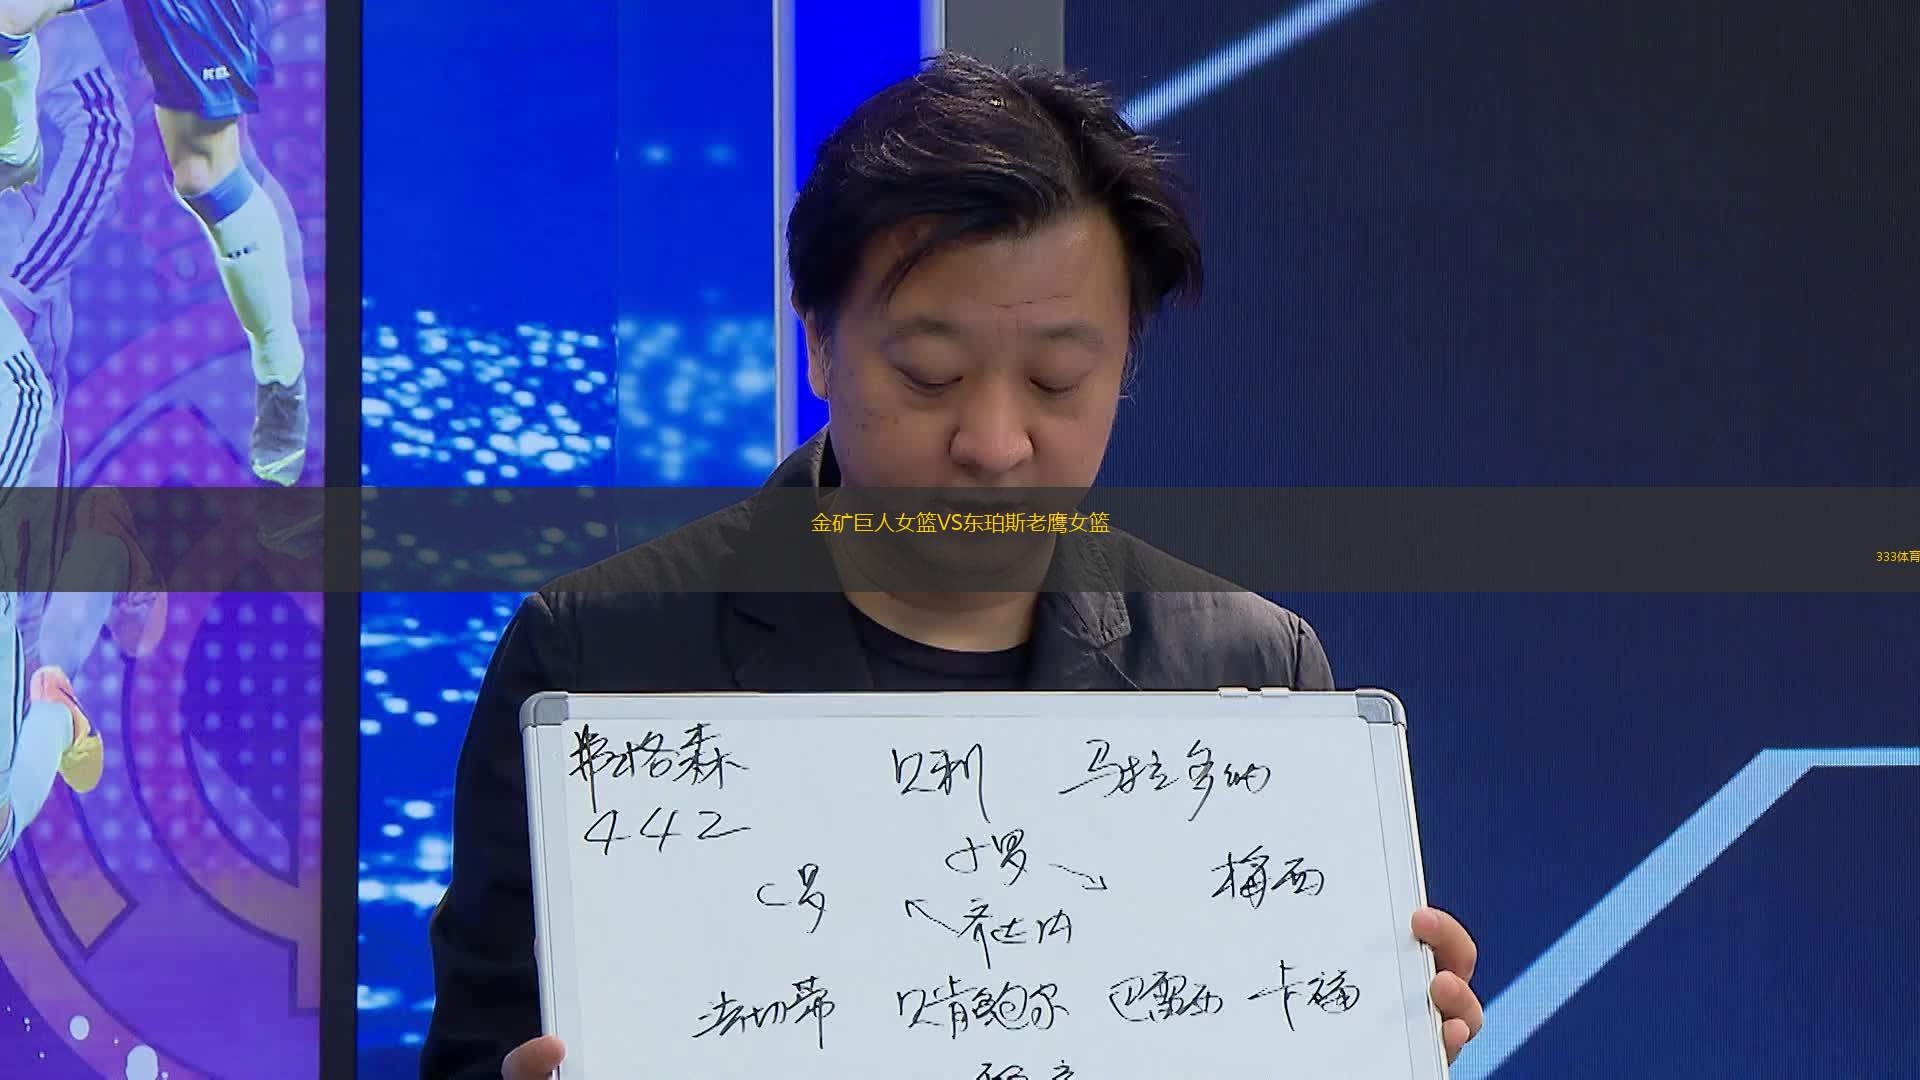 金矿巨人女篮VS东珀斯老鹰女篮
333体育
弗格森 贝利 马拉多纳
442
小罗
C罗 梅西
齐达内
法切蒂 贝肯鲍尔 巴雷西 卡福